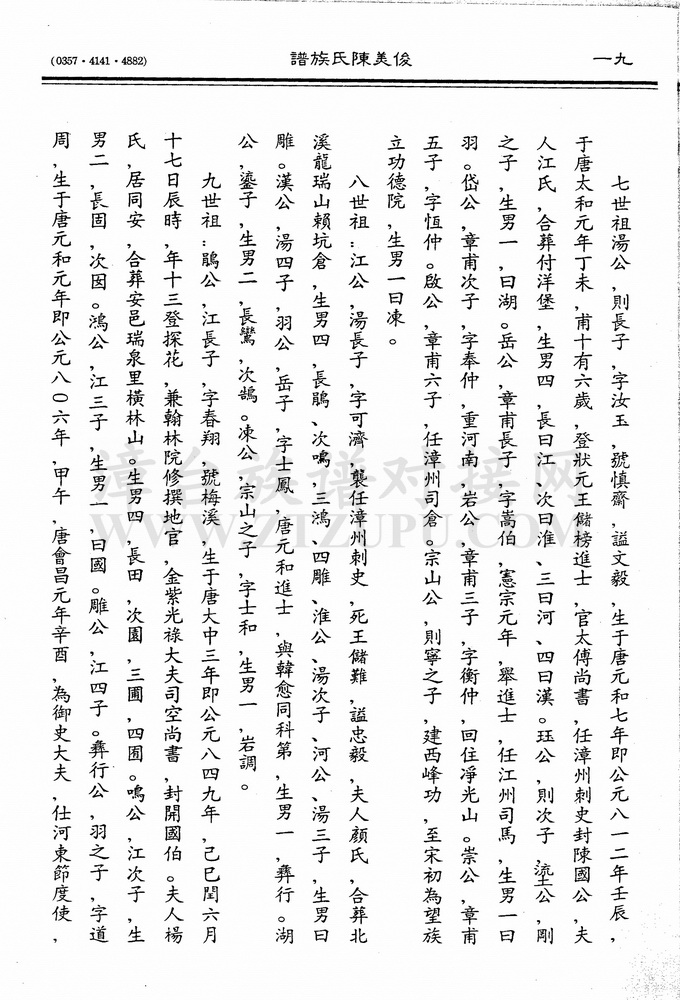 一九
俊美陳氏族譜
(0357・4141・4882)
七世祖湯公,則長子,字汝玉,號慎齋,諡文毅,生于唐元和七年即公元八一二年壬辰,
于唐太和元年丁未,甫十有六歲,登狀元王儲榜進士,官太傅尚書,任漳州刺史封陳國公,夫
人江氏,合葬付洋堡,生男四,長曰江、次曰淮、三曰河、四曰漢。珏公,則次子,鎏公,剛
之子,生男一,曰湖。岳公,章甫長子,字嵩伯,憲宗元年,舉進士,任江州司馬,生男一曰
羽。岱公,章甫次子,字奉仲,重河南,岩公,章甫三子,字衡仲,回住淨光山。崇公,章甫
五子,字恆仲。啟公,章甫六子,任漳州司倉。宗山公,則寧之子,建西峰功,至宋初為望族
立功德院,生男一曰凍。
八世祖:江公,湯長子,字可濟,襲任漳州刺史,死王儲難,諡忠毅,夫人顏氏,合葬北
溪龍瑞山賴坑倉,生男四,長鵑、次鳴,三鴻、四雕、淮公、湯次子、河公、湯三子,生男曰
雕。漢公,湯四子,羽公,岳子,字士鳳,唐元和進士,與韓愈同科第,生男一,彝行。湖
公,鎏子,生男二,長鸞,次鵠。凍公,宗山之子,字士和,生男一,岩調。
九世祖:鵑公,江長子,字春翔,號梅溪,生于唐大中三年即公元八四九年,己巳閏六月
十七日辰時,年十三登探花,兼翰林院修撰地官,金紫光祿大夫司空尚書,封開國伯。夫人楊
氏,居同安,合葬安邑瑞泉里橫林山。生男四,長田,次園,三圃,四囿。鳴公,江次子,生
男二,長固,次因。鴻公,江三子,生男一,曰國。雕公,江四子。彝行公,羽之子,字道
周,生于唐元和元年即公元八〇六年,甲午,唐會昌元年辛酉,為御史大夫,仕河東節度使,
漳台族谱对接网
WWW.ZTZUPU.COM